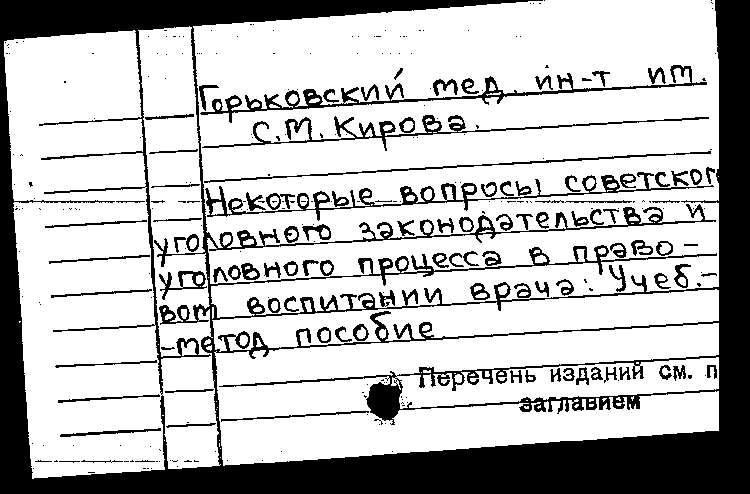 Горьковский мед. ин-т им.
С.М. Кирова.
Некоторые вопросы советског
уголовного законодательства и
уголовного процесса в право-
вом воспитании врача: Учеб.-
-метод пособие
Перечень изданий см. п
заглавием